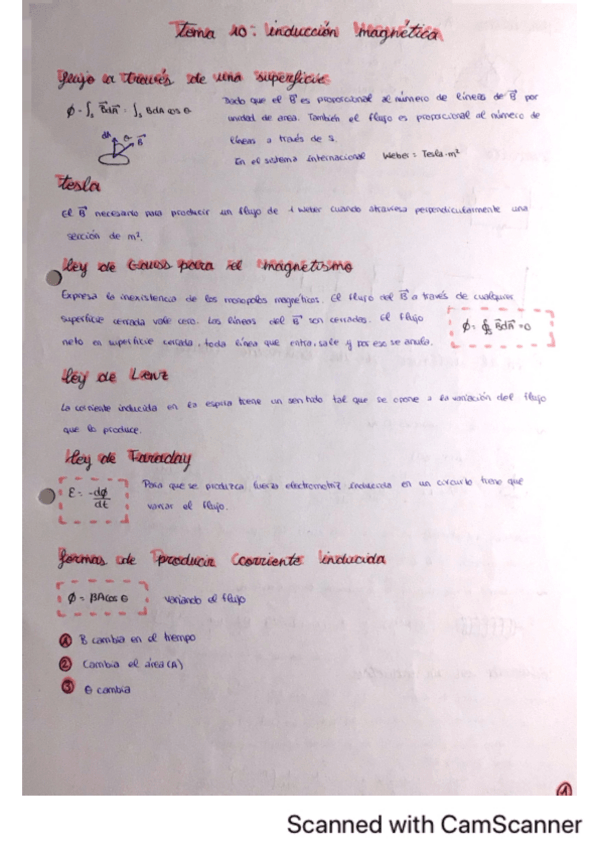 Tema 10: inducción magnética
flujo a través de una superficie
ϕ = ∫s B⃗dA⃗ = ∫s BdA cos θ
Dado que el B⃗ es proporcional al número de líneas de B⃗ por
unidad de area. También el flujo es proporcional al número de
líneas a través de s.
dA⃗ θ B⃗
En el sistema internacional Weber = Tesla·m²
tesla
El B⃗ necesario para producir un flujo de 1 weber cuando atraviesa perpendicularmente una
sección de m².
ley de Gauss para el magnetismo
Expresa la inexistencia de los monopolos magnéticos. El flujo del B⃗ a través de cualquier
superficie cerrada vale cero. Las líneas del B⃗ son cerradas. El flujo
neto en superficie cerrada, toda línea que entra, sale y por eso se anula.
ϕ = ∮s B⃗dA⃗ = 0
ley de Lenz
La corriente inducida en la espira tiene un sentido tal que se opone a la variación del flujo
que la produce.
ley de Faraday
ε = -dϕ/dt
Para que se produzca fuerza electromotriz inducida en un circuito tiene que
variar el flujo.
formas de Producir corriente inducida
ϕ = BAcos θ
variando el flujo
1 B cambia en el tiempo
2 Cambia el área (A)
3 θ cambia
1
Scanned with CamScanner